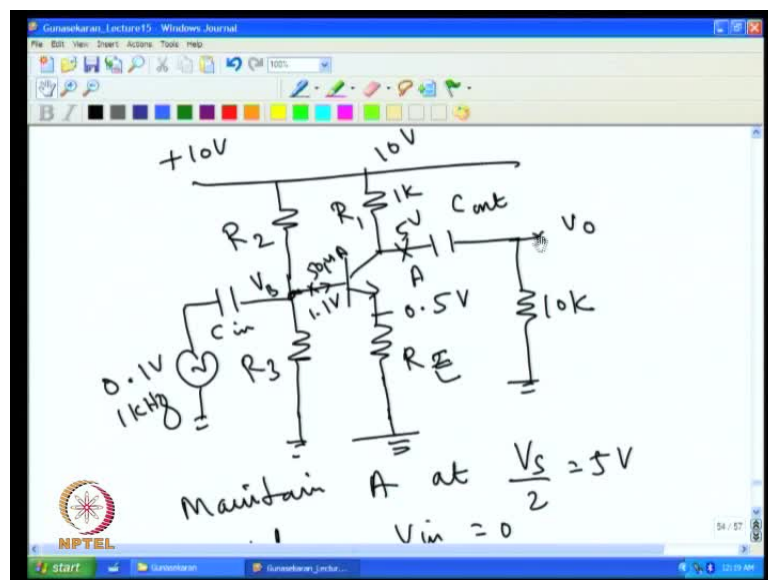 Gunasekaran_Lecture15 - Windows Journal
File Edit View Insert Actions Tools Help
100%
B I
+10V
10V
R2
R1
1K
5V
Cout
Vo
VB
50μA
1.1V
A
0.5V
10K
Cin
R3
RE
0.1V
1KHz
Maintain A at Vs/2 = 5V
Vin = 0
54 / 57
NPTEL
start
Gunasekaran
Gunasekaran_Lectur...
12:19 AM